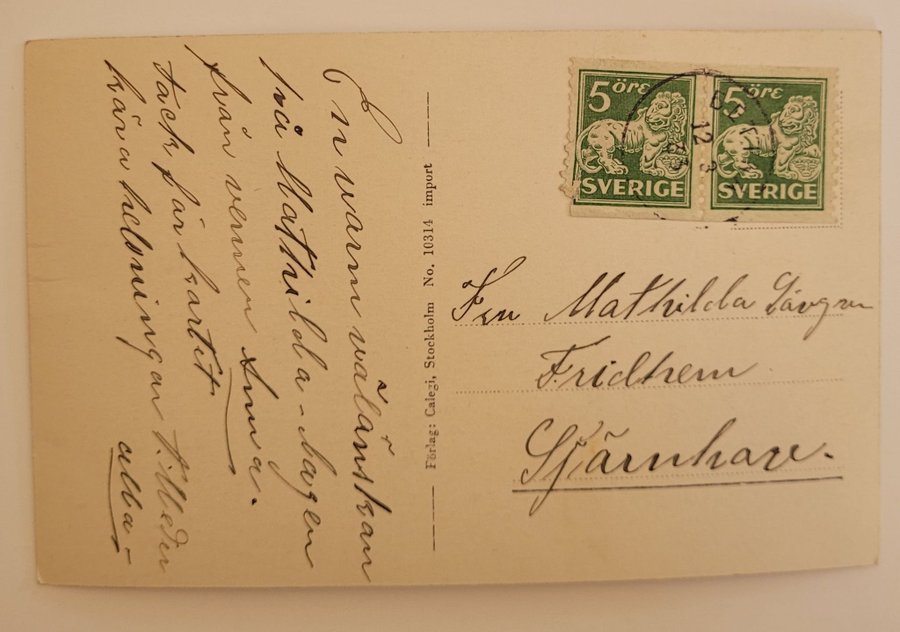 En varm välönskan
på Mathilda-dagen
från vennen Anna.
Tack får kortit
kära helsningar till eder
alla-
Förlag: Calegi, Stockholm No. 10314 import
5 öre
SVERIGE
5 öre
SVERIGE
12 3
33
Fru Mathilda Lövgren
Fridhem
Stjärnhov.